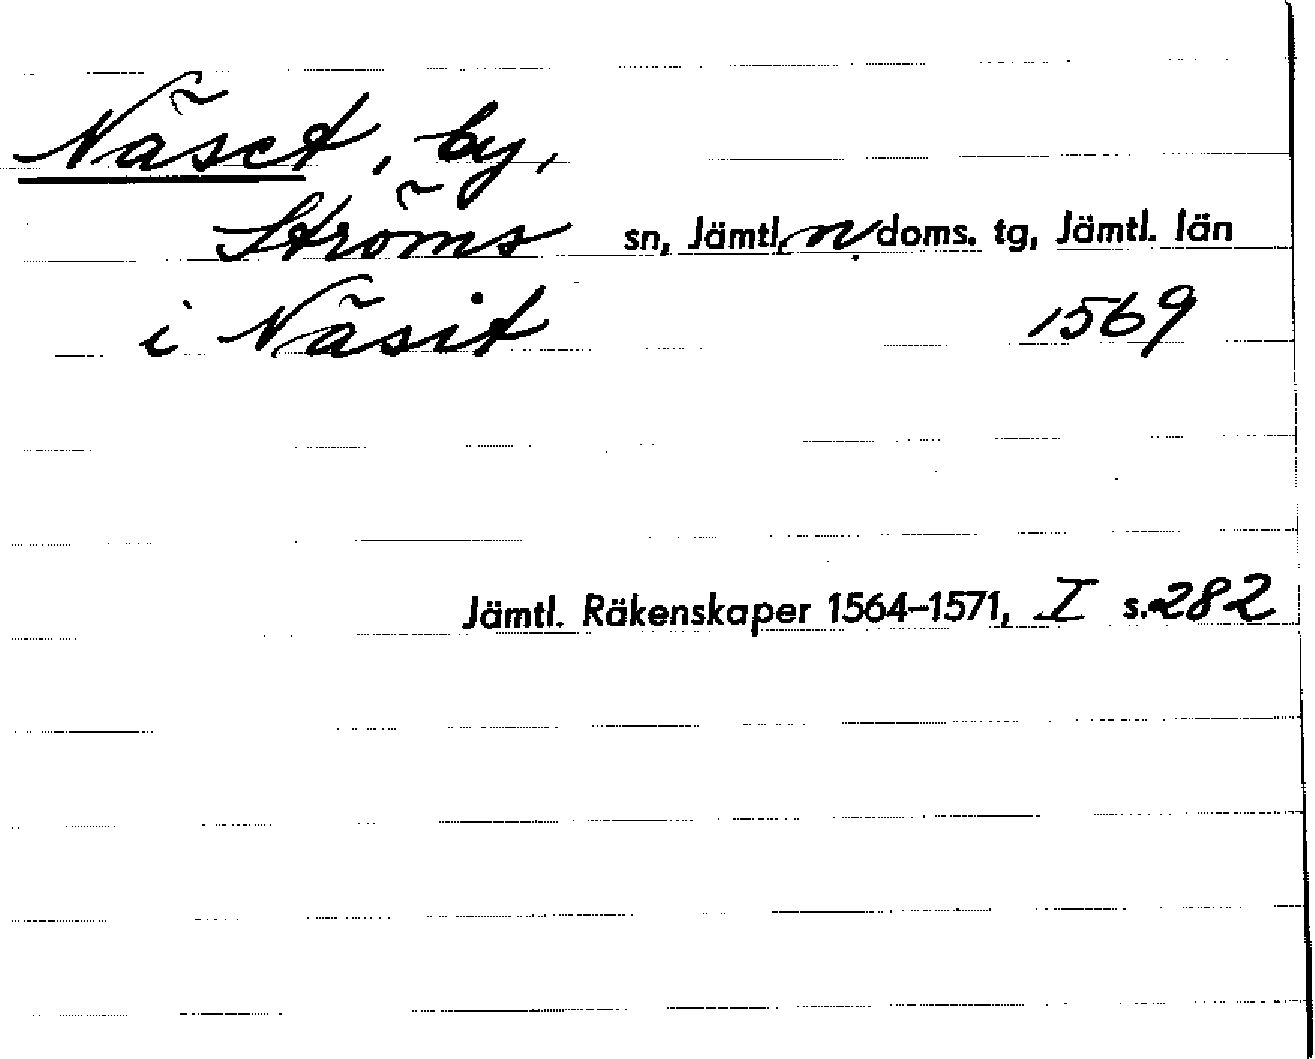 Näset, by,
Ströms sn, Jämtl. n. doms. tg, Jämtl. län
i Näsit 1569
Jämtl. Räkenskaper 1564–1571, I s. 282